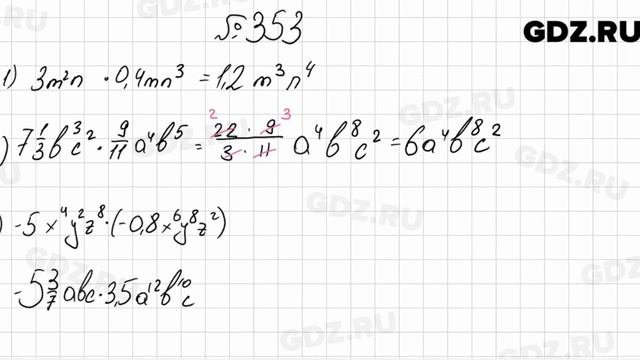 № 353
GDZ.RU
1) 3m²n · 0,4mn³ = 1,2 m³n⁴
) 7 1/3 b³c² · 9/11 a⁴b⁵ = 22 · 9 / 3 · 11 a⁴b⁸c² = 6a⁴b⁸c²
2 3
) -5x⁴y²z⁸·(-0,8x⁶y⁸z²)
-5 3/7 abc · 3,5a¹²b¹⁰c
GDZ.RU
GDZ.RU
GDZ.RU
GDZ.RU
GDZ.RU